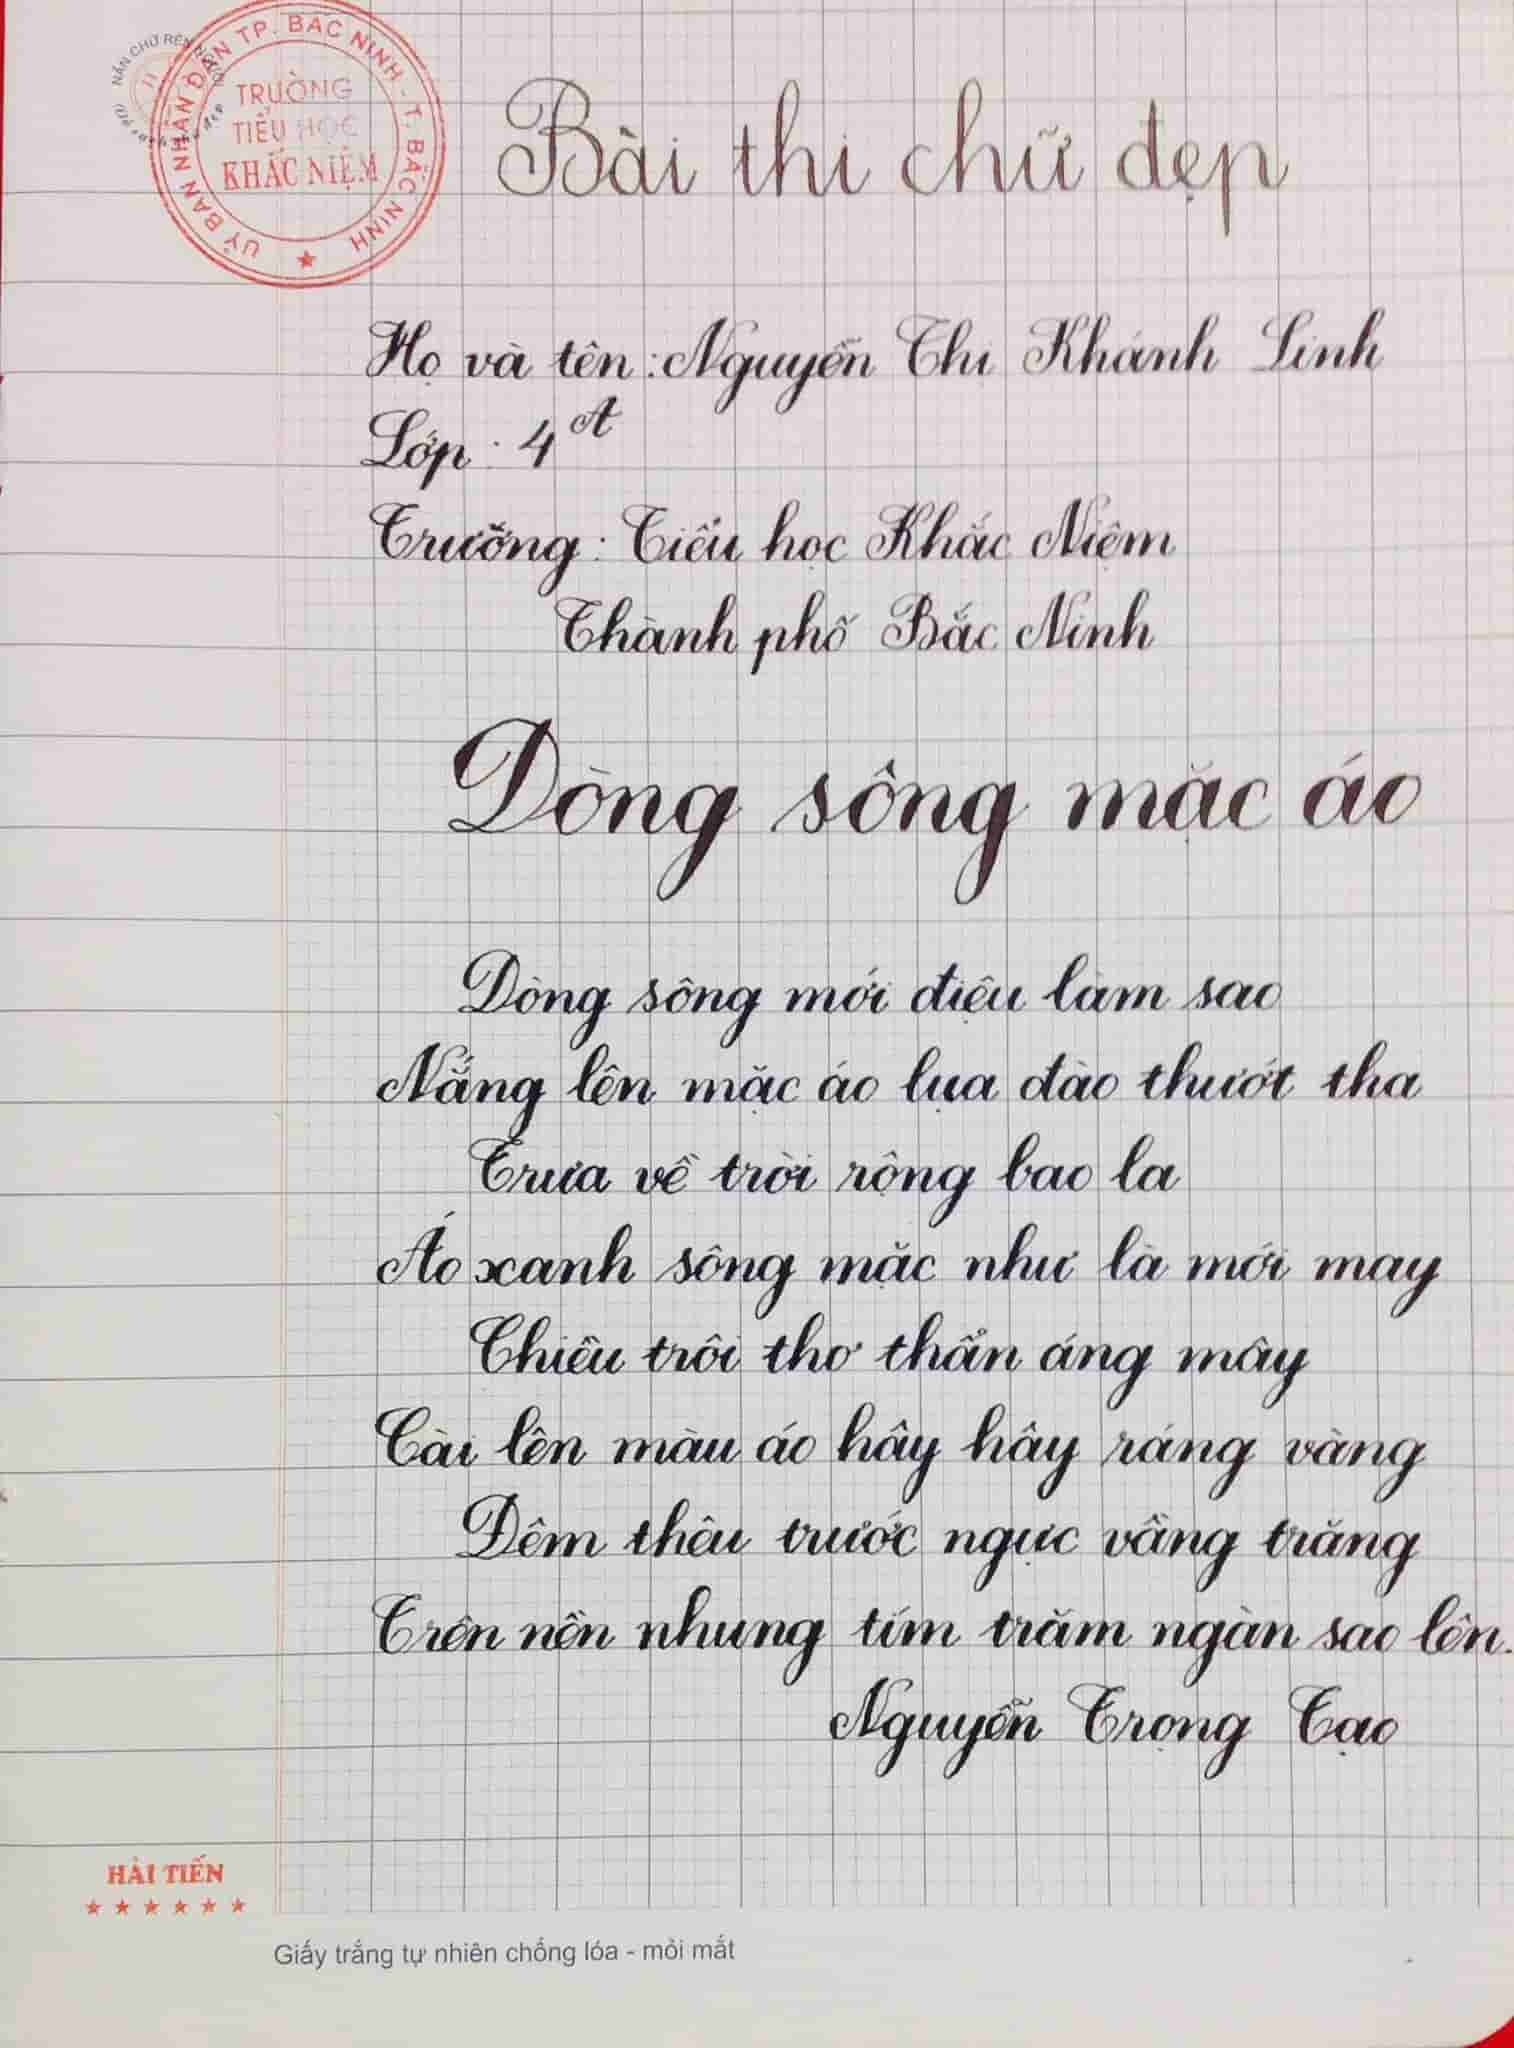 NẮN CHỮ RÈN
UỶ BAN NHÂN DÂN TP. BẮC NINH - T. BẮC NINH
TRƯỜNG
TIỂU HỌC
KHẮC NIỆM
Bài thi chữ đẹp
Họ và tên: Nguyễn Thi Khánh Linh
Lớp: 4A
Trường: Tiểu học Khắc Niệm
Thành phố Bắc Ninh
Dòng sông mặc áo
Dòng sông mới điệu làm sao
Nắng lên mặc áo lụa đào thướt tha
Trưa về trời rộng bao la
Áo xanh sông mặc như là mới may
Chiều trôi thơ thẩn áng mây
Cài lên màu áo hây hây ráng vàng
Đêm thêu trước ngực vầng trăng
Trên nền nhung tím trăm ngàn sao lên.
Nguyễn Trọng Tạo
HẢI TIẾN
Giấy trắng tự nhiên chống lóa - mỏi mắt